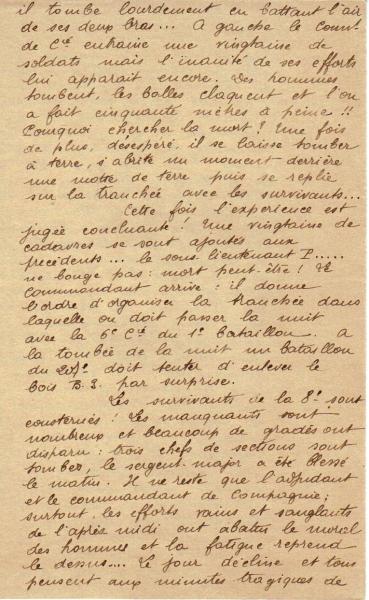 il tombe lourdement en battant l'air
de ses deux bras... A gauche le comt
de Cie entraine une vingtaine de
soldats mais l'inanité de ses efforts
lui apparait encore. Des hommes
tombent, les balles claquent et l'on
a fait cinquante mètres à peine !!
Pourquoi chercher la mort ? Une fois
de plus, désespéré, il se laisse tomber
à terre, s'abrite un moment derrière
une motte de terre puis se replie
sur la tranchée avec les survivants...
Cette fois l'expérience est
jugée concluante ! Une vingtaine de
cadavres se sont ajoutés aux
précédents... le sous-lieutenant P.....
ne bouge pas : mort peut-être ! Le
commandant arrive : il donne
l'ordre d'organiser la tranchée dans
laquelle on doit passer la nuit
avec la 6e Cie du 1er bataillon. A
la tombée de la nuit un bataillon
du 204e doit tenter d'enlever le
bois B.3. par surprise.
Les survivants de la 8e sont
consternés ! Les manquants sont
nombreux et beaucoup de gradés ont
disparu : trois chefs de sections sont
tombés, le sergent-major a été blessé
le matin. Il ne reste que l'adjudant
et le commandant de Compagnie;
surtout, les efforts vains et sanglants
de l'après midi ont abattu le moral
des hommes et la fatigue reprend
le dessus.... Le jour décline et tous
pensent aux minutes tragiques de